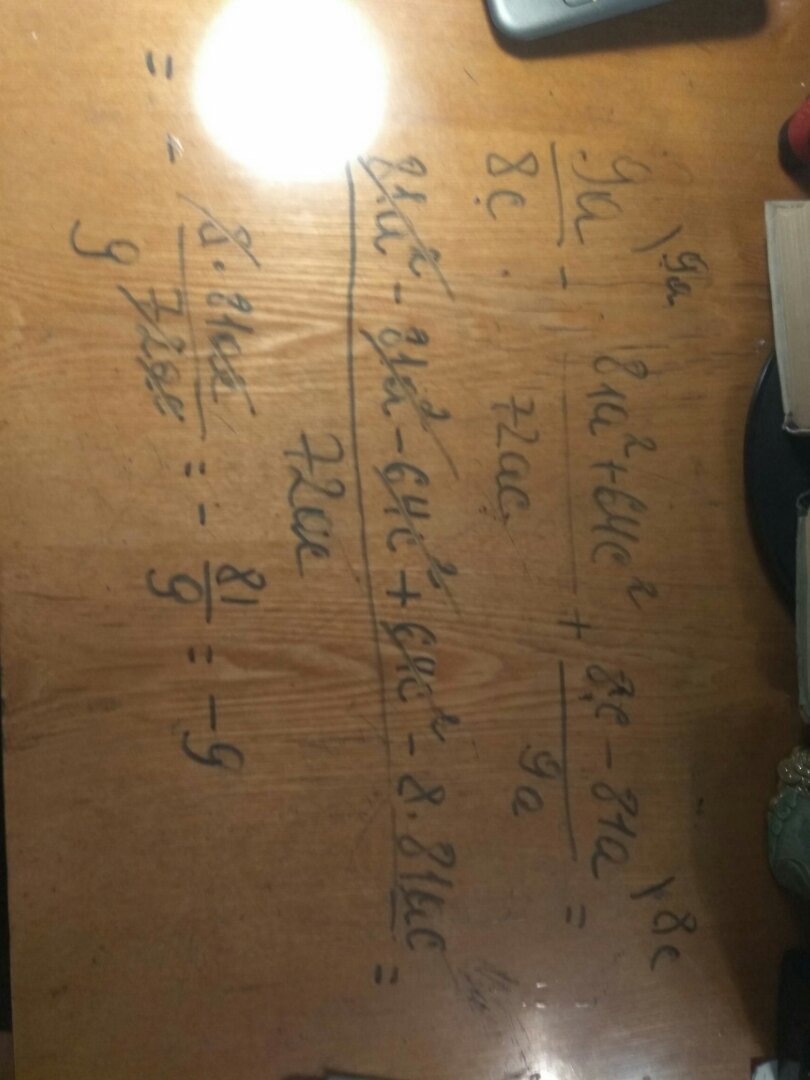 9a/8c \9a - (81a² + 64c²)/72ac + (8c - 81a)/9a \8c =
(81a² - 81a² - 64c² + 64c² - 8·81ac)/72ac =
= - 8·81ac/72ac 9 = - 81/9 = -9